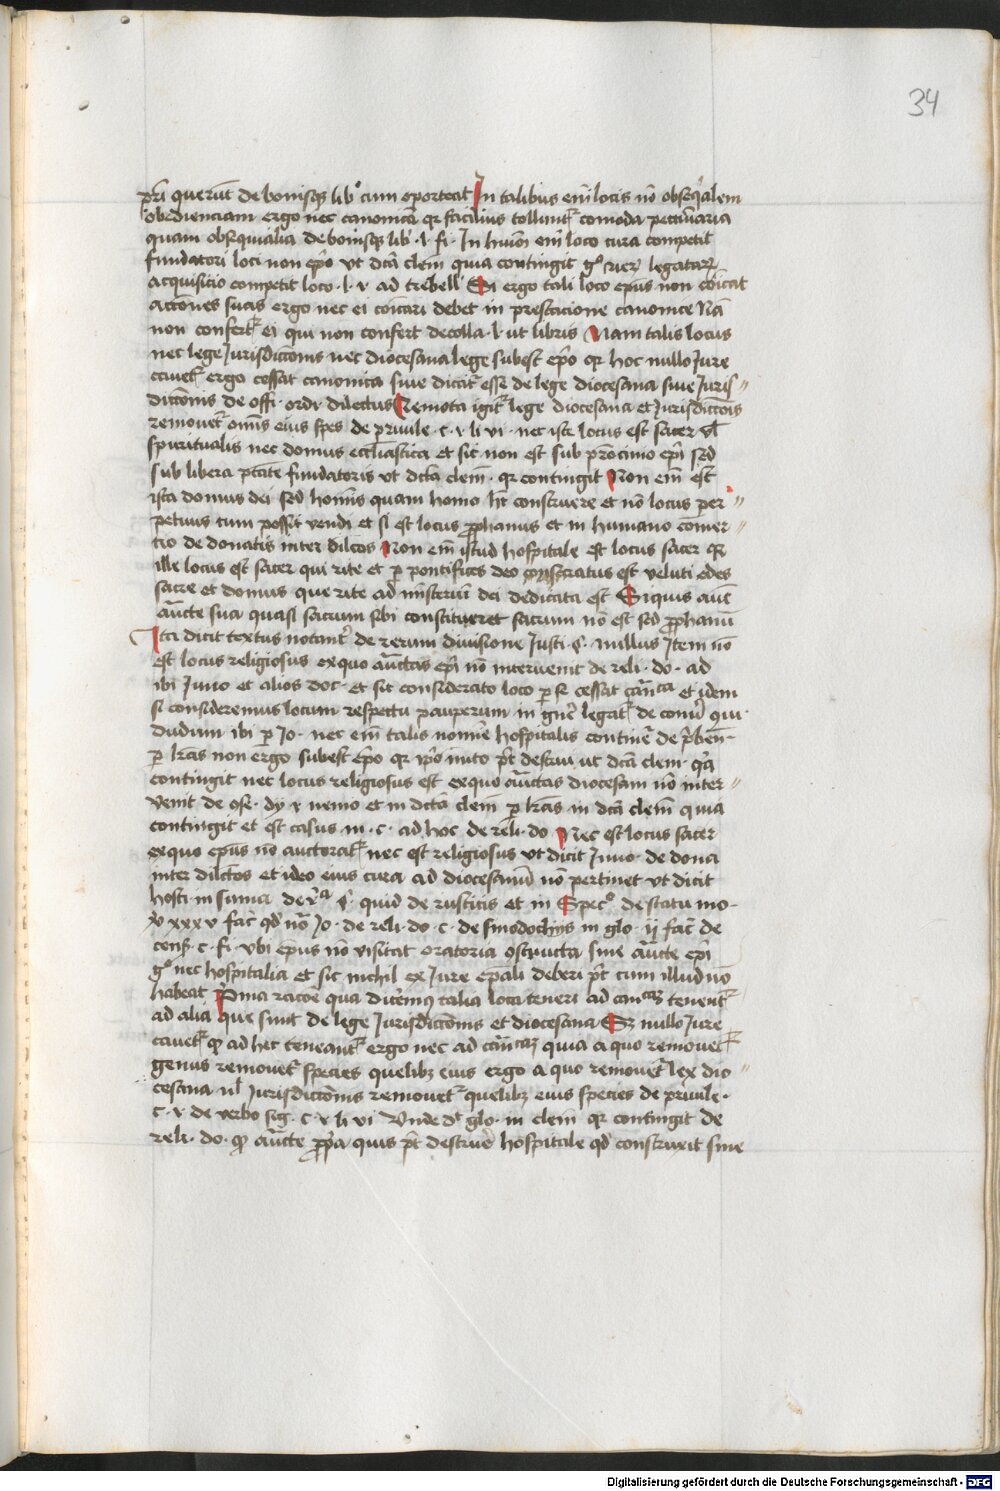 34
pri querūt de bonisqꝫ lib cum oporteat In talibus em̄ locis nō obseqͣlem
obedienciam ergo nec canonicā qr facilius tollunt᷑ comoda pecūniaria
quam obsequialia de bonisqꝫ lib · l · fi · In huiō em̄ loco cura competit
fundatori loci non ep̄o vt dc̄a clem̄ quia contingit gͦ legatar
acquisicio competit loco · l · r ad trebell Si ergo tali loco epus non cōicat
acciones suas ergo nec ei cōicari debet in prestacione canonice Nā
non confert᷑ ei qui non confert de colla · l · ut libris Nam talis locus
nec lege Jurisdicc̄onis nec diocesana lege subest ep̄o qr hoc nullo Jure
cauet᷑ ergo cessat canonica siue dicat᷑ esse de lege diocesana siue Juris〃
dicc̄onis de offi · ordi dilectus Remota igit᷑ lege diocesana et Jurisdicc̄ois
remouet᷑ om̄is eius spes de priuile · c · r li vi · nec iste locus est sacer vl̄
spiritualis nec domus eccl̄iastica et sic non est sub pat̄rocinio ep̄i sed
sub libera ptāte fundatoris vt dc̄a clem̄ · qr contingit Non em̄ est
ista domus dei sed hom̄is quam homo hꝫ construere et nō locus per〃
petuus cum possit vendi et si est locus prophanus et in humano comer〃
cio de donatis inter dilc̄os Non em̄ istud hospitale est locus sacer qr
ille locus est sacer qui rite et p pontifices deo consecratus est veluti edes
sacre et domus que rite ad mīsteriū dei dedicata est Siquis autē
auc̄te sua quasi sacrum sibi constitueret sacrum nō est sed prophanū
Ita dicit textus notant᷑ de rerum diuisione Justi · §· nullius Item nō
est locus religiosus ex quo auc̄tas ep̄i nō interuenit de reli · do · ad
ibi Inno et alios doc · et sic considerato loco p se cessat cano᷑ica et idem
si consideremus locum respectu pauperum in gn̄e legat᷑ de consue qui
dudum ibi p Jo · nec em̄ talis nomīe hospitalis continet᷑ de p̄ben̄·
p lr̄as non ergo subest ep̄o qr ipō inuito pt̄ destrui ut dc̄a clem̄ · qꝛ
contingit nec locus religiosus est ex quo auc̄tas diocesani nō inter〃
uenit de cōse · dy · r nemo et in dc̄ta clem̄ p lr̄as in dc̄ā clem̄ quia
contingit et est casus in · c · ad hoc de reli · do Nec est locus sacer
ex quo epus nō auctorat᷑ nec est religiosus vt dicit Inno · de dona
inter dilc̄os et ideo eius cura ad diocesanū nō pertinet vt dicit
hosti in summa de §· quid de rusticis et in Specͦ de statu mo·
xxxv fac̄ qd nō Jo · de reli · do · c · de sinodochiis in glo · ij fac̄ de
cens̄ · c · fi · vbi epus nō visitat oratoria ostructa sine auc̄te ep̄i
gͦ nec hospitalia et sic nichil ex Jure ep̄ali deberi pt̄ cum illud nō
habeat Prima rac̄oe qua dicemꝯ talia loca teneri ad can̄cā tenent᷑
ad alia que sunt de lege Jurisdicc̄onis et diocesana Sꝫ nullo Jure
cauet᷑ qꝫ ad hec teneant᷑ ergo nec ad can̄cā quia a quo remouet᷑
genus remouet᷑ species quelibꝫ eius ergo a quo remouet᷑ lex dio〃
cesana vl̄ Jurisdicc̄onis remouet᷑ quelibꝫ eius species de priuile ·
c · r de verbo sig · c · r li vi Vnde dt̄ glo · in clem̄ qr contingit de
reli · do · qꝫ auc̄te ppria quis pt̄ destruē hospitale qd construxit sine
Digitalisierung gefördert durch die Deutsche Forschungsgemeinschaft - DFG